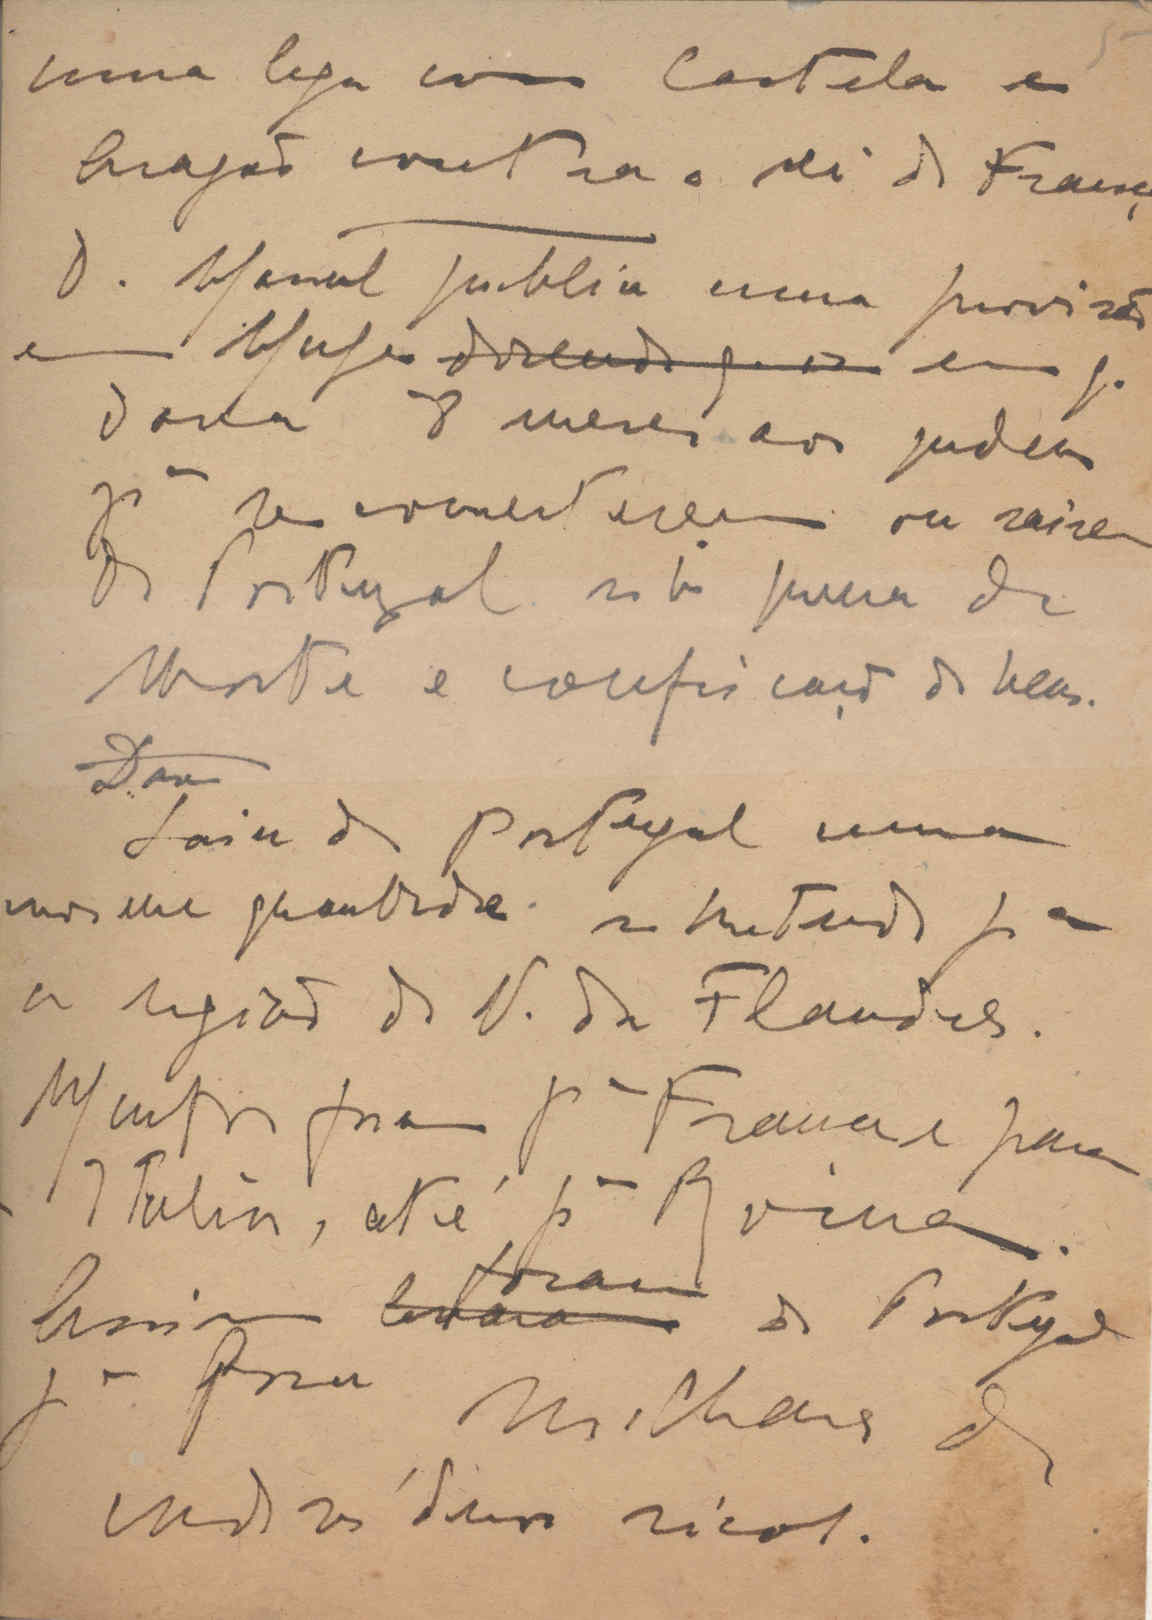 uma liga com Castela e
Aragão contra o rei de França
D. Manuel publica uma provisão
em Muge dizendo q. os em q.
dava 8 meses aos judeus
pª se converterem ou sairem
de Portugal sob pena de
Morte e confiscação de bens.
Dav
Saiu de Portugal uma
enorme quantidade remetendo pª
a região do N. da Flandres.
Muitos foram pª França e para
Italia, até pª Roma.
foram
Assim levaram de Portugal
pª fora Milhares de
individuos ricos.